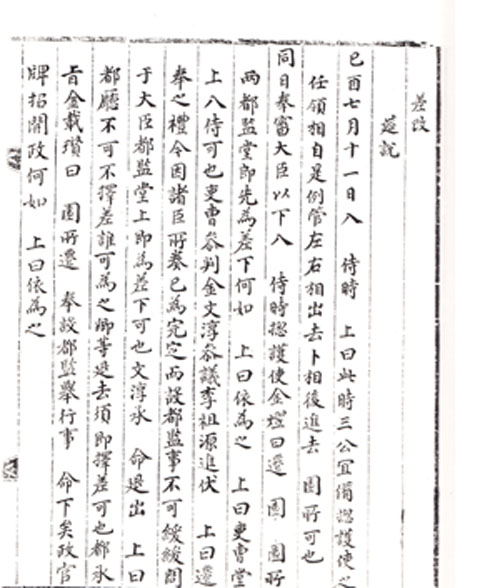 差改
筵說
己酉七月十一日入 侍時 上曰此時三公宜備摠護使之
任領相自是例管左右相出去卜相後進去 園所可也
同日奉審大臣以下入 侍時摠護使金熤曰遷 園 園所
兩都監堂郎先爲差下何如 上曰依爲之 上曰吏曹堂
上入侍可也吏曹參判金文淳參議李祖源進伏 上曰遷
奉之禮今因諸臣所奏已爲完定而設都監事不可緩緩間
于大臣都監堂上郎爲差下可也文淳承 命退出 上曰
都廳不可不擇差誰可爲之卿等退去須即擇差可也都承
旨金載瓚曰 園所遷 奉設都監擧行事 命下矣政官
牌招開政何如 上曰依爲之